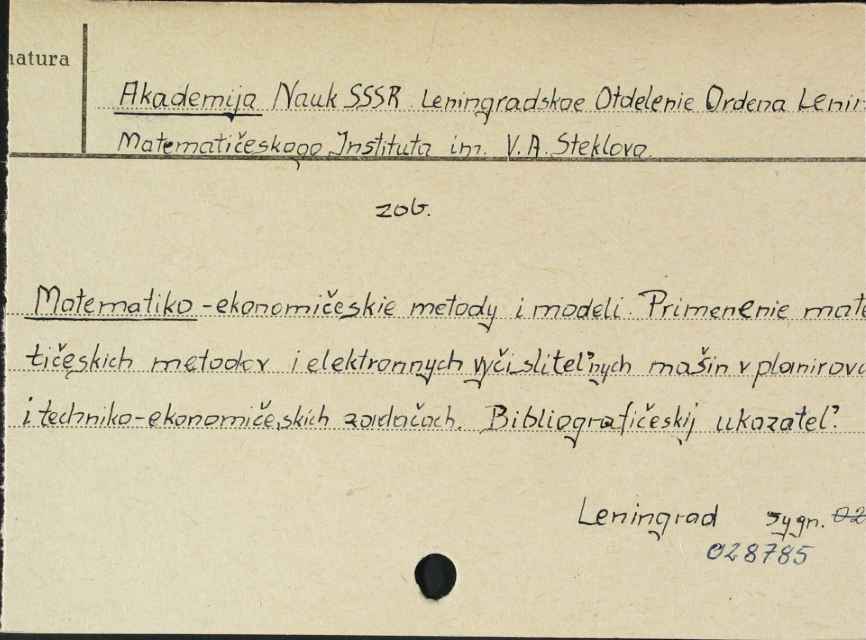 natura
Akademija Nauk SSSR. Leningradskoe Otdelenie Ordena Lenin
Matematičeskogo Instituta im. V.A. Steklova.
zob.
Matematiko-ekonomičeskie metody i modeli. Primenenie mate
tičeskich metodov i elektronnych vyčislitel'nych mašin v planirova
i techniko-ekonomičeskich zadačach. Bibliografičeskij ukazatel'.
Leningrad sygn. 02
028785